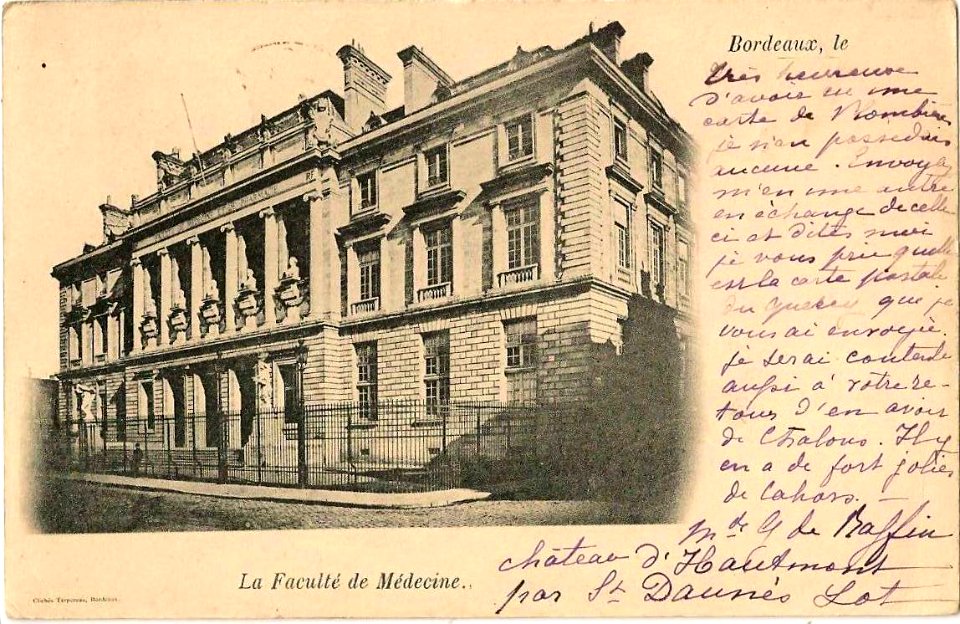 Bordeaux, le
Très heureuse
d'avoir eu une
carte de Plombières
je n'en possédais
aucune. Envoyez
m'en une autre
en échange de celle
ci et dites moi
je vous prie quelle
est la carte postale
du Quercy que je
vous ai envoyée.
Je serai contente
aussi à votre re-
tour d'en avoir
de Chalons. Il y
en a de fort jolies
de Cahors. —
Mde G de Raffin
château d'Hautmont
par St Daunès Lot
La Faculté de Médecine.
Clichés Terpereau, Bordeaux